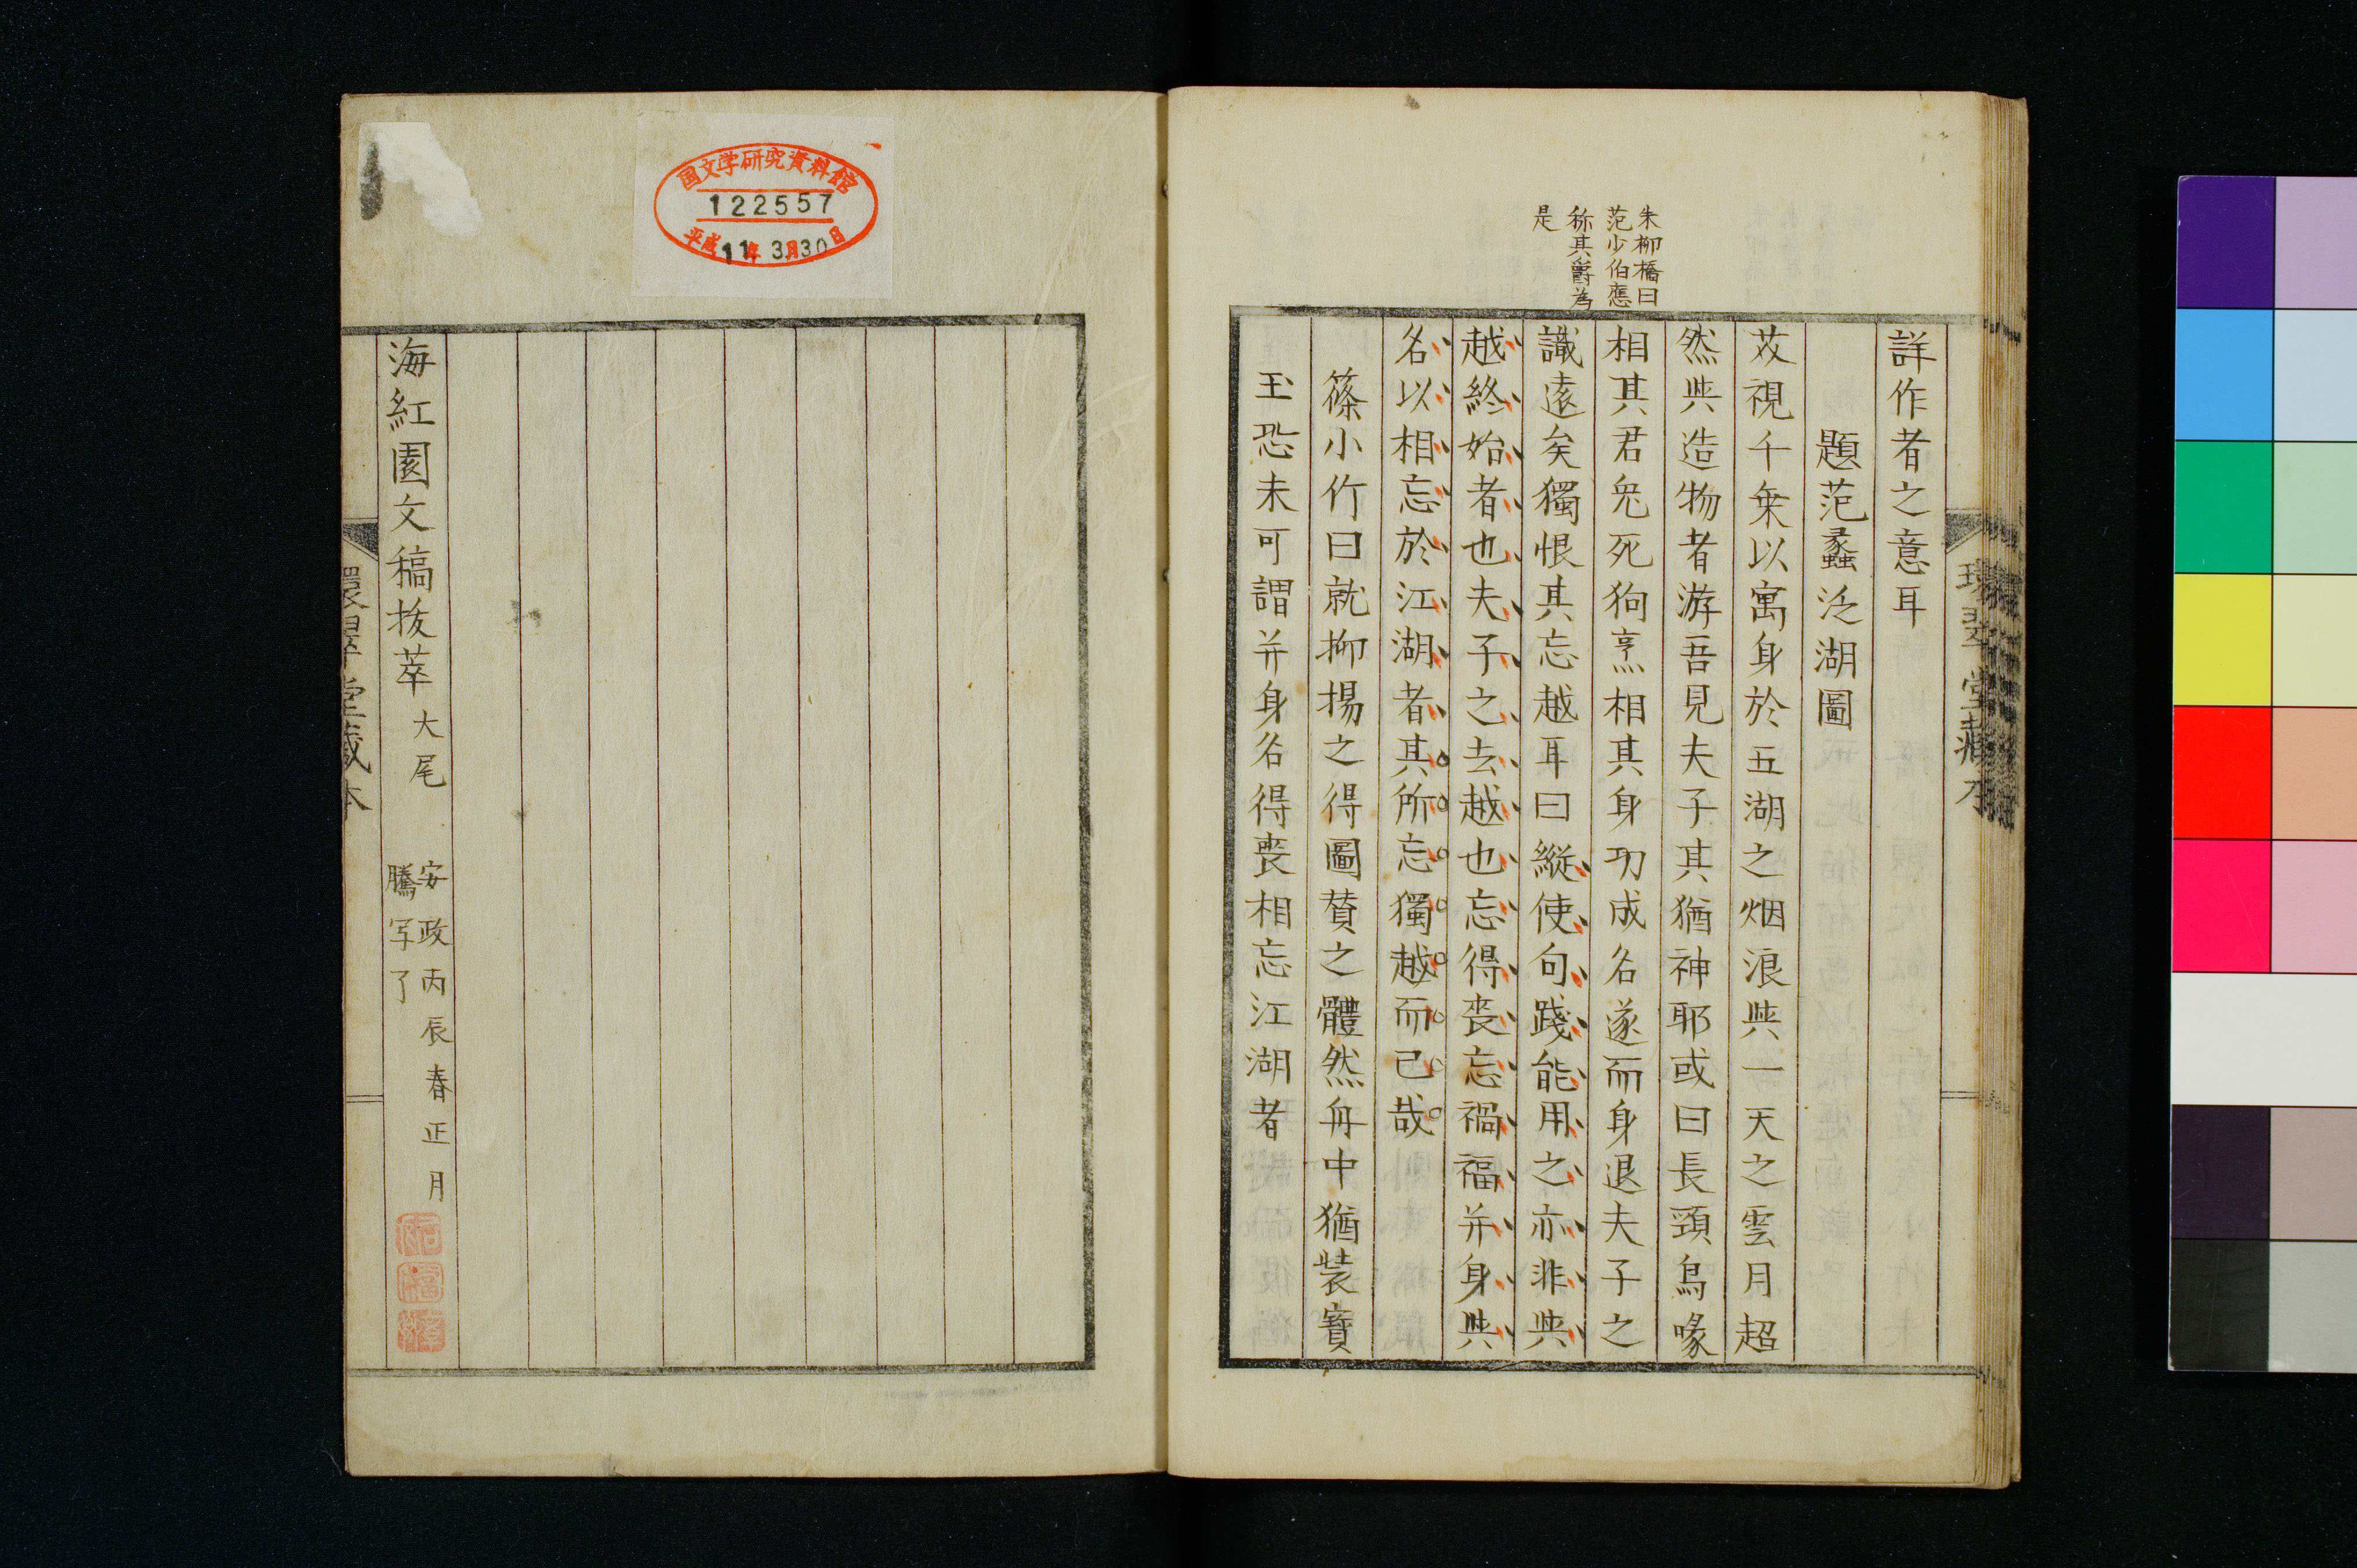 環翠堂藏本
詳作者之意耳
題范蠡泛湖圖
芥視千乗以寓身於五湖之烟浪與一天之雲月超
然與造物者游吾見夫子其猶神耶或曰長頸鳥喙
相其君兎死狗烹相其身功成名遂而身退夫子之
識遠矣獨恨其忘越耳曰縱使句踐能用之亦非與
越終始者也夫子之去越也忘得喪忘禍福并身與
名以相忘於江湖者其所忘獨越而已哉
篠小竹曰就抑揚之得圖賛之體然舟中猶装寳
玉恐未可謂并身名得喪相忘江湖者
朱柳橋曰
范少伯應
称其爵為
是
国文学研究資料館
122557
平成11年3月30日
海紅園文稿抜萃 大尾
安政丙辰春正月
騰写了
環翠堂藏本